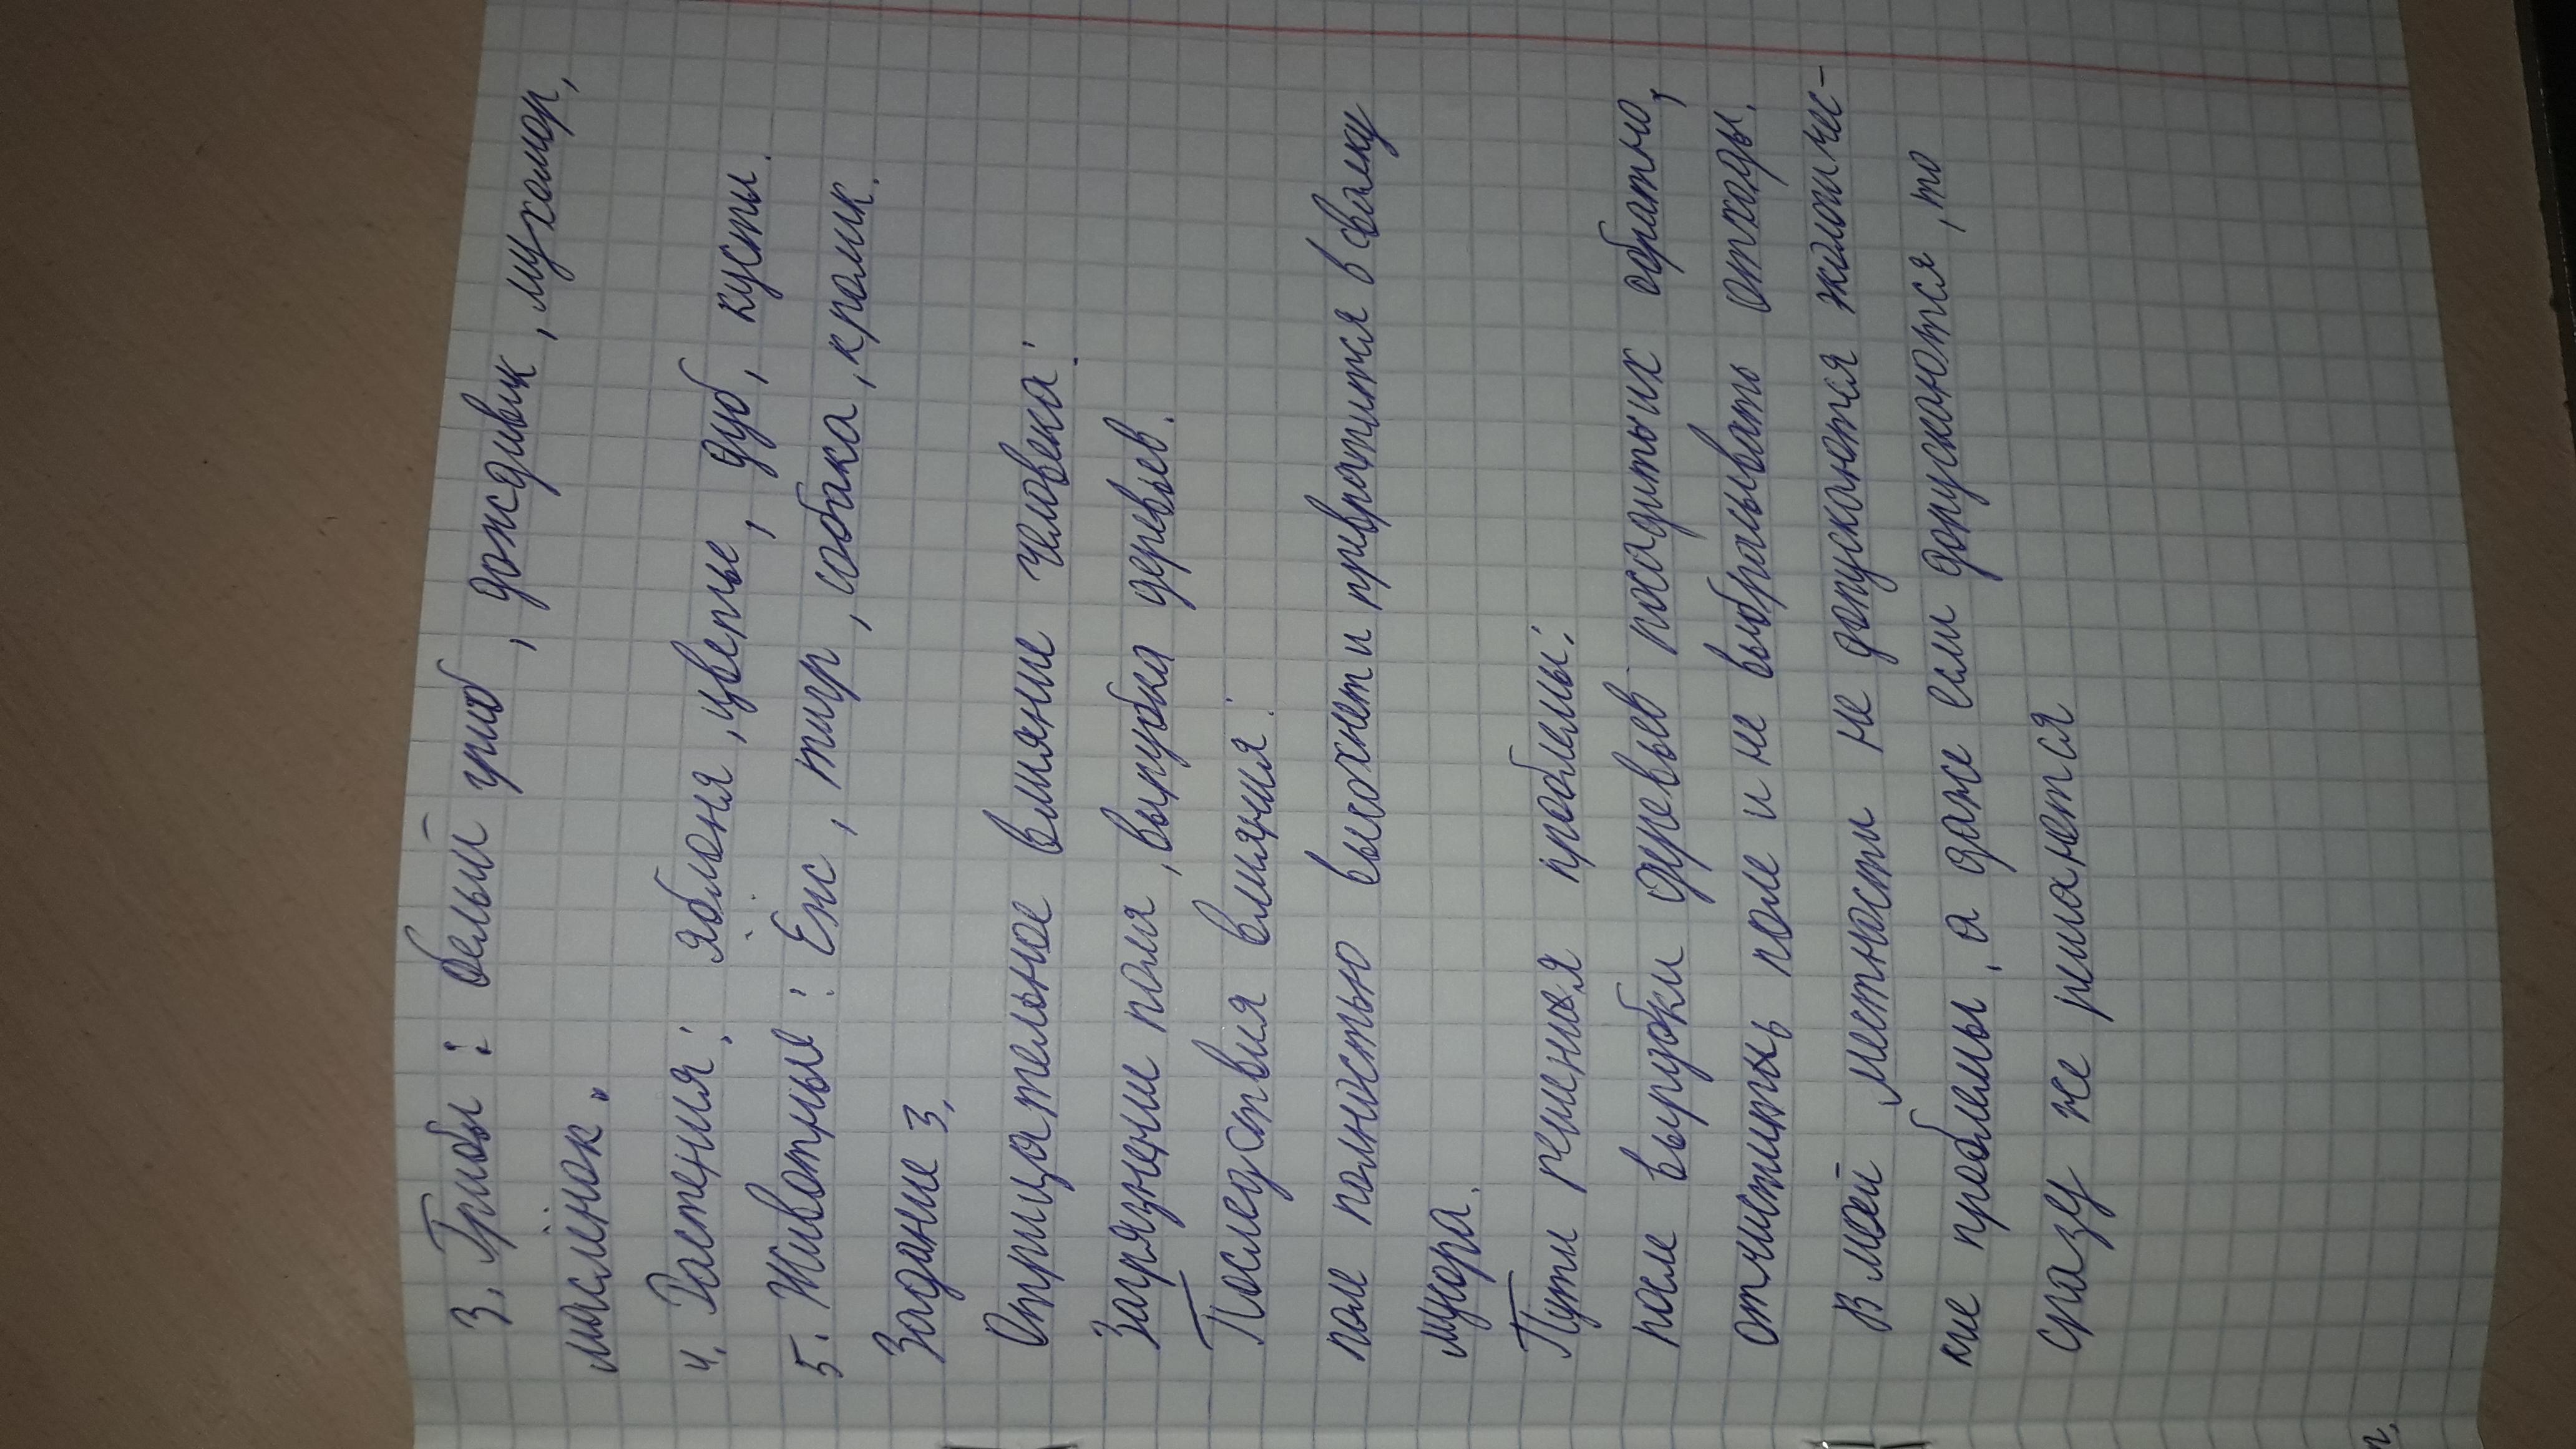 3. Грибы : белый гриб , дождивик , мухомор,
маслёнок.
4. Растения : яблоня , цветы , дуб , кусты.
5. Животные : Ёж , тигр , собака , кролик.
Задание 3.
Отрицательное влияние человека :
Загрязнение поля , вырубка деревьев.
Последствия влияния :
поле полностью высохнет и превратится в свалку
мусора.
Пути решения проблемы :
после вырубки деревьев посадить их обратно,
отчистить поле и не выбрасывать отходы.
В моей местности не допускаются экологичес-
кие проблемы , а даже если допускаются , то
сразу же решаются